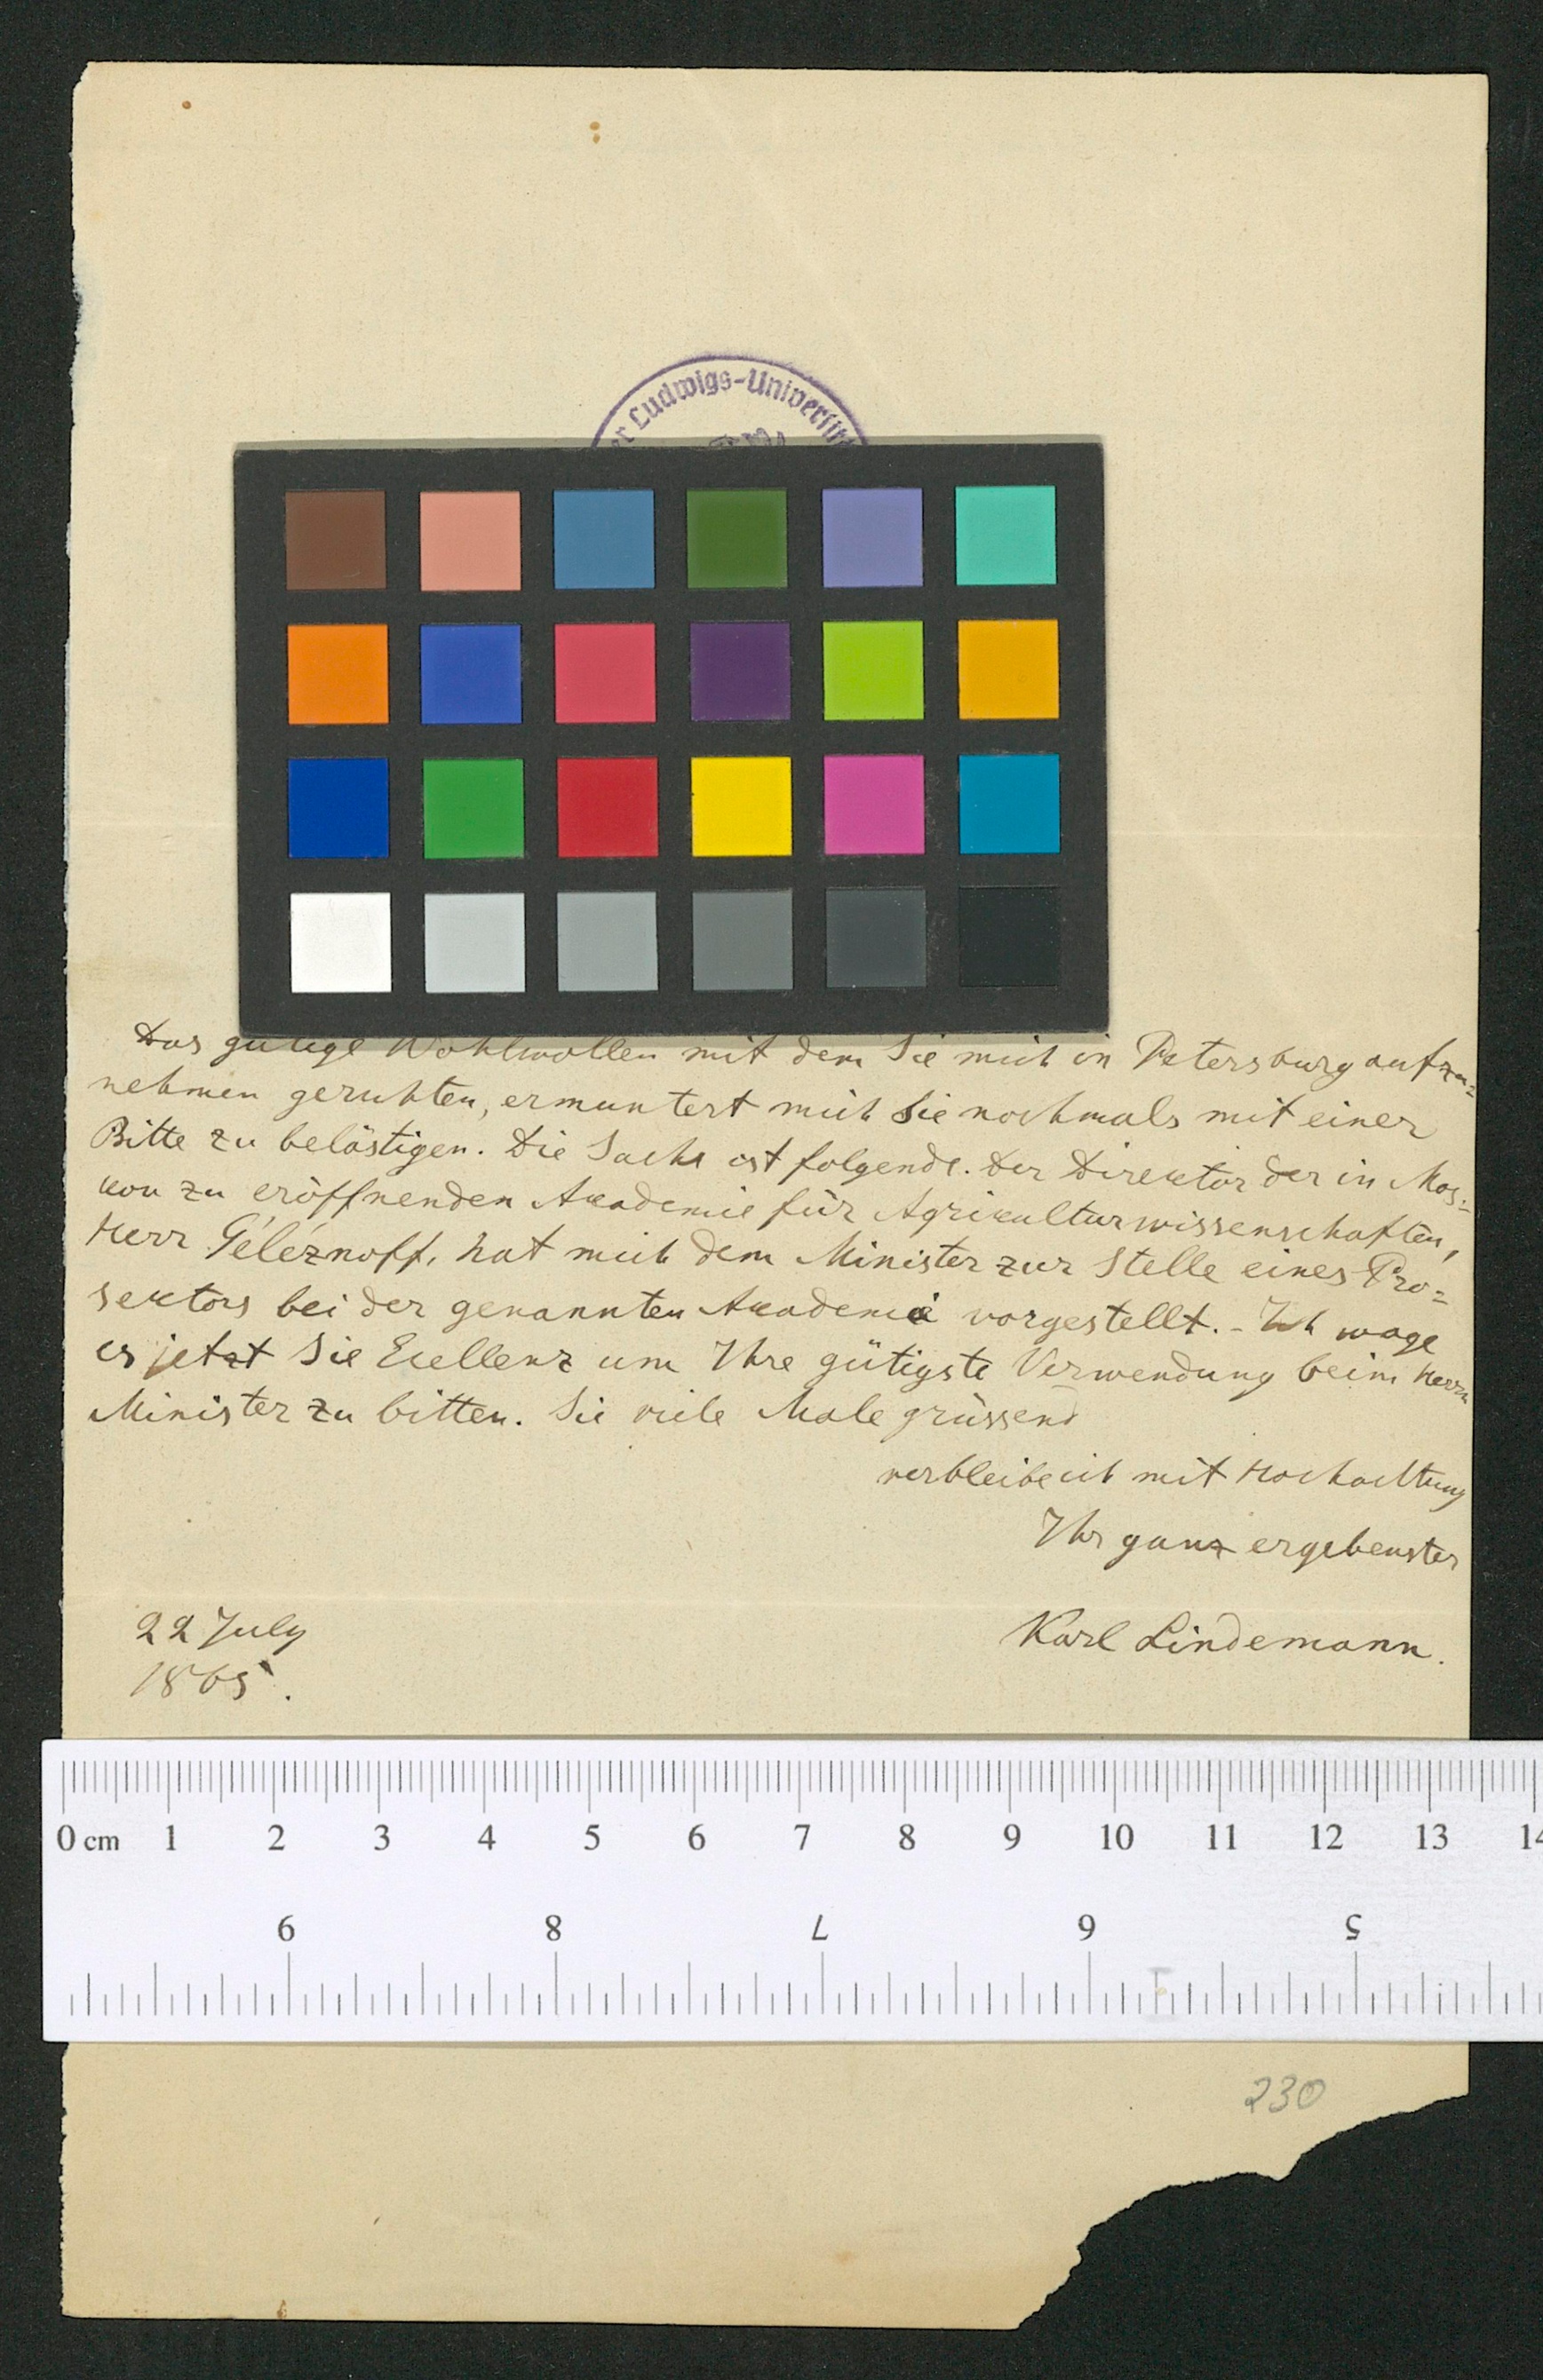 r Ludwigs-Universit
Das gütige Wohlwollen mit dem Sie mich in Petersburg aufzu=
nehmen geruhten, ermuntert mich Sie nochmals mit einer
Bitte zu belästigen. Die Sache ist folgende. Der Direktor der in Mos=
kou zu eröffnenden Akademie für Agrikulturwissenschaften,
Herr Géléznoff, hat mich dem Minister zur Stelle eines Pro=
sektors bei der genannten Akademie vorgestellt. - Ich wage
es jetzt Sie Exellenz um Ihre gütigste Verwendung beim Herrn
Minister zu bitten. Sie viele Male grüssend
verbleibe ich mit Hochachtung
Ihr ganz ergebenster
22 July
Karl Lindemann.
1865.
0 cm 1 2 3 4 5 6 7 8 9 10 11 12 13 14
9 8 7 6 5
230